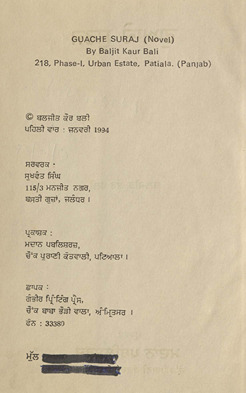 GUACHE SURAJ (Novel)
By Baljit Kaur Bali
218, Phase-I, Urban Estate, Patiala. (Panjab)
© ਬਲਜੀਤ ਕੌਰ ਬਲੀ
ਪਹਿਲੀ ਵਾਰ : ਜਨਵਰੀ 1994
ਸਰਵਰਕ :
ਸੁਖਵੰਤ ਸਿੰਘ
115/3 ਮਨਜੀਤ ਨਗਰ,
ਬਸਤੀ ਗੁਜ਼ਾਂ, ਜਲੰਧਰ ।
ਪ੍ਰਕਾਸ਼ਕ :
ਮਦਾਨ ਪਬਲਿਸ਼ਰਜ਼,
ਚੌਂਕ ਪੁਰਾਣੀ ਕੋਤਵਾਲੀ, ਪਟਿਆਲਾ ।
ਛਾਪਕ :
ਗੰਭੀਰ ਪ੍ਰਿੰਟਿੰਗ ਪ੍ਰੈਸ,
ਚੌਂਕ ਬਾਬਾ ਭੌੜੀ ਵਾਲਾ, ਅੰਮ੍ਰਿਤਸਰ ।
ਫੋਨ : 33380
ਮੁੱਲ